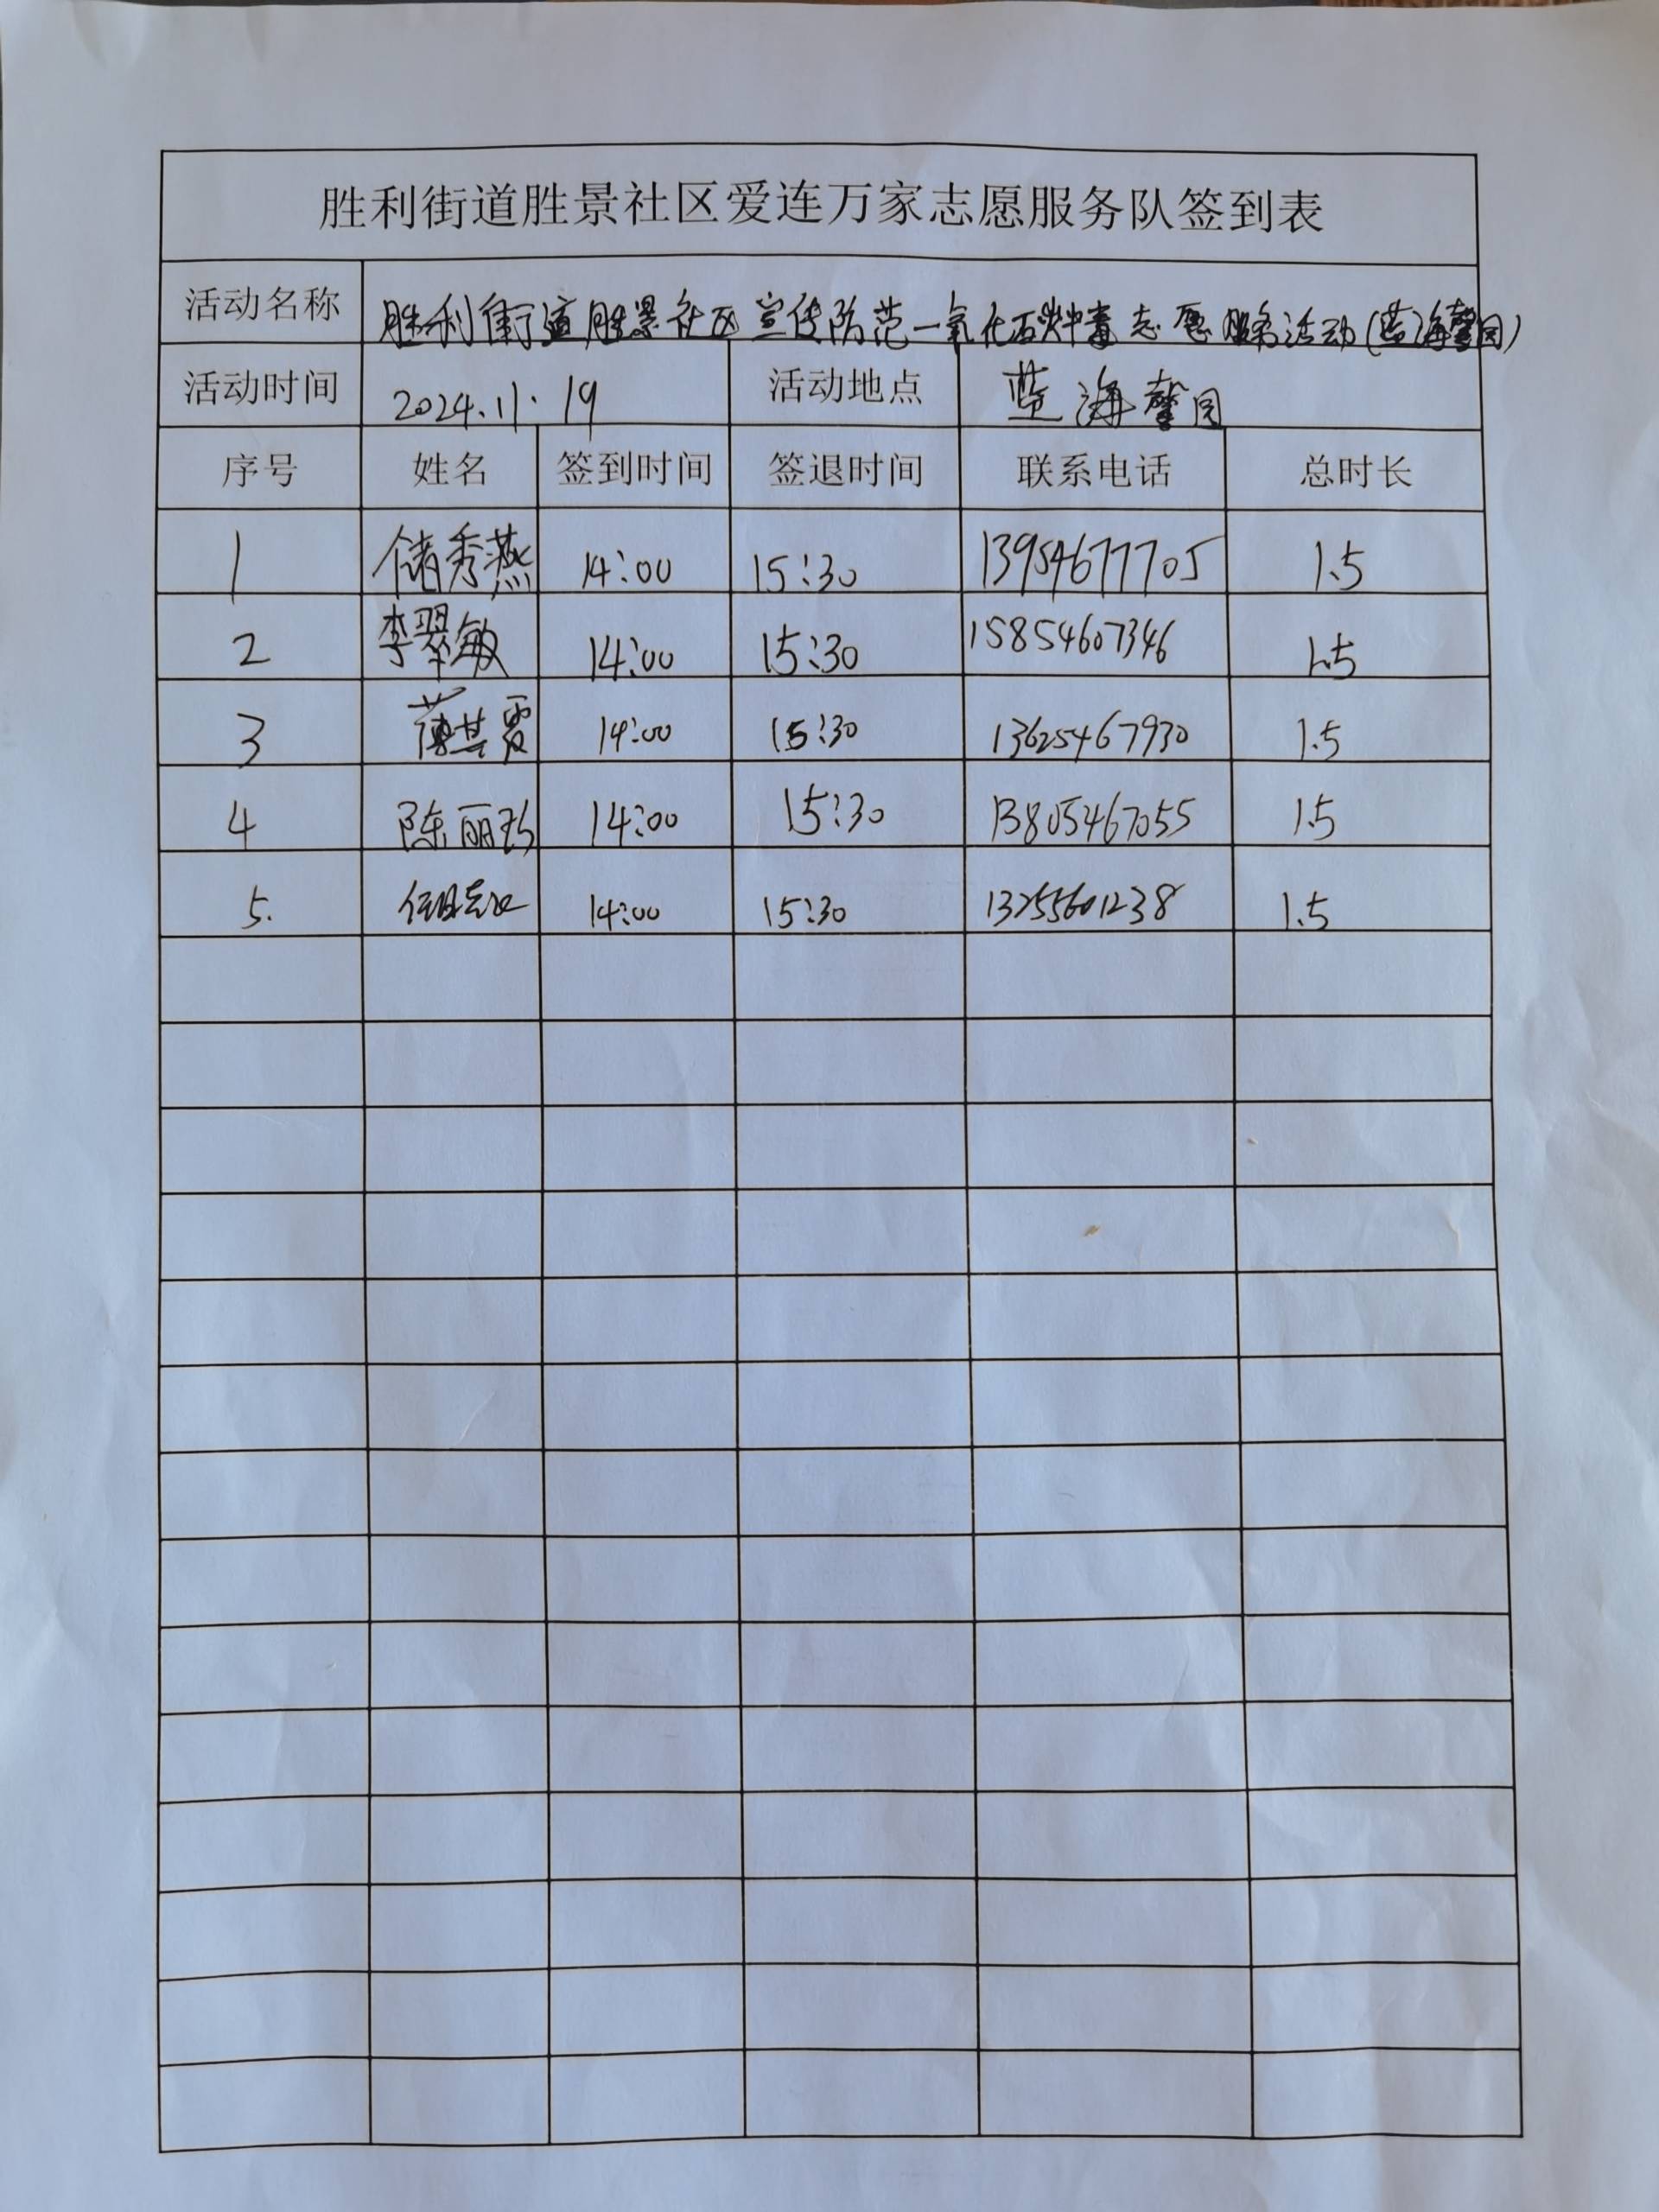 胜利街道胜景社区爱连万家志愿服务队签到表
活动名称 胜利街道胜景社区宣传防范一氧化碳中毒志愿服务活动(蓝海馨园)
活动时间 2024.11.19 活动地点 蓝海馨园
序号 姓名 签到时间 签退时间 联系电话 总时长
1 储秀燕 14:00 15:30 13954677705 1.5
2 李翠敏 14:00 15:30 15854607346 1.5
3 薄其霞 14:00 15:30 13625467930 1.5
4 陈丽 14:00 15:30 13805467055 1.5
5. 14:00 15:30 13255601238 1.5